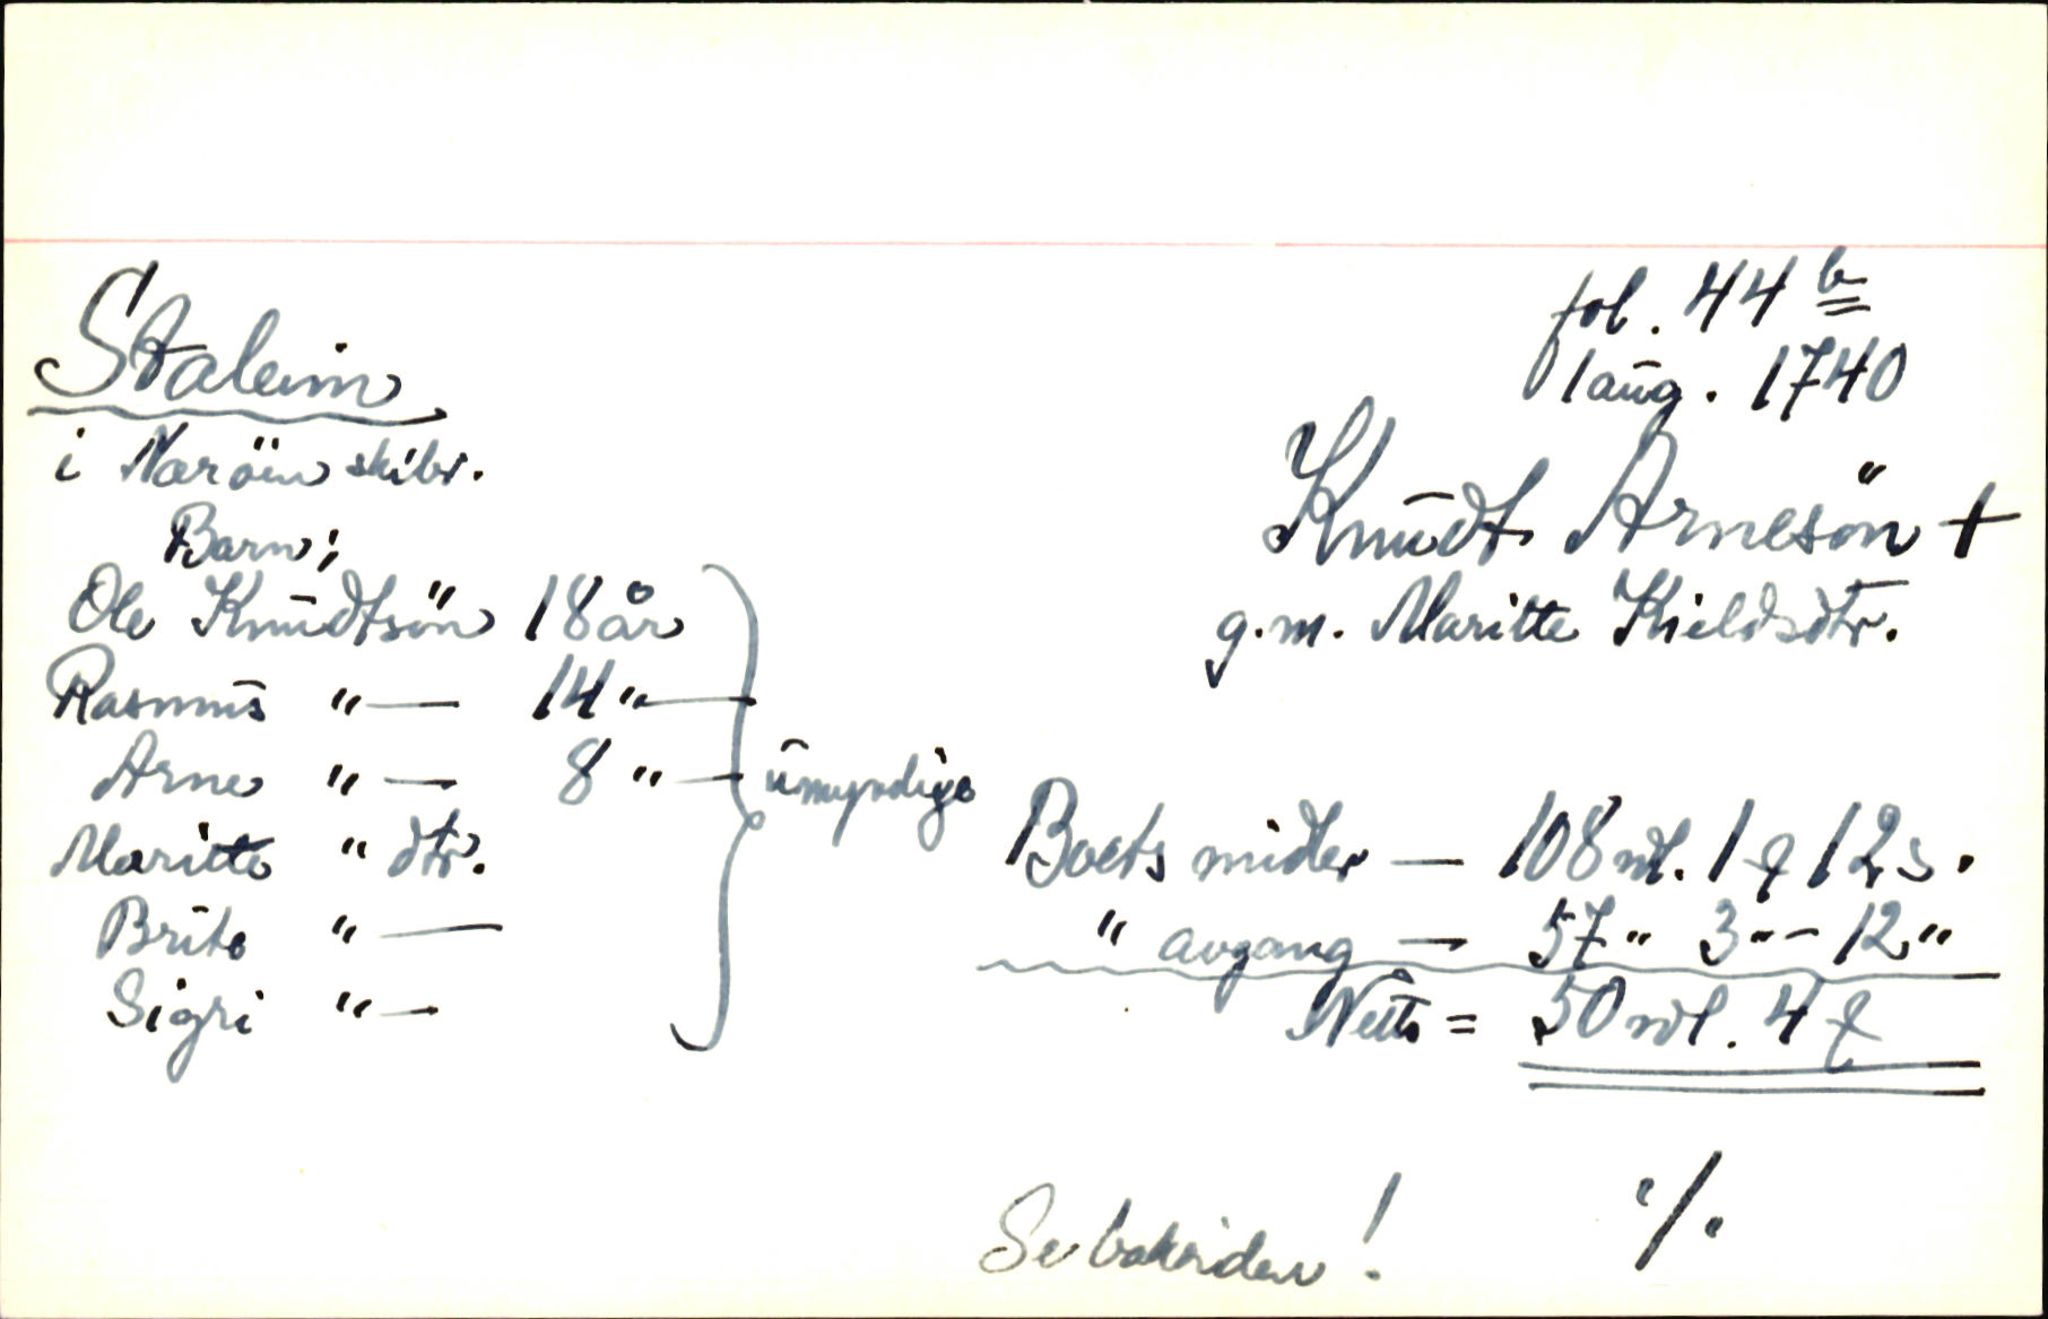 fol. 44 b
1 aug. 1740
Staleim
i Næröens skibr.
Knudt Arnesön +
g.m. Maritte Kieldsdtr.
Barn;
Ole Knudtsön 18 år
Rasmus "— 14 "—
Arne "— 8 "— umyndige
Maritte " dtr.
Brite "—
Sigri "—
Boets midler — 108 rdl. 1 ƒ 12 s.
" avgang — 57 " 3 "– 12 "
Netto = 50 rdl. 4 ƒ
Se baksiden! ·/.